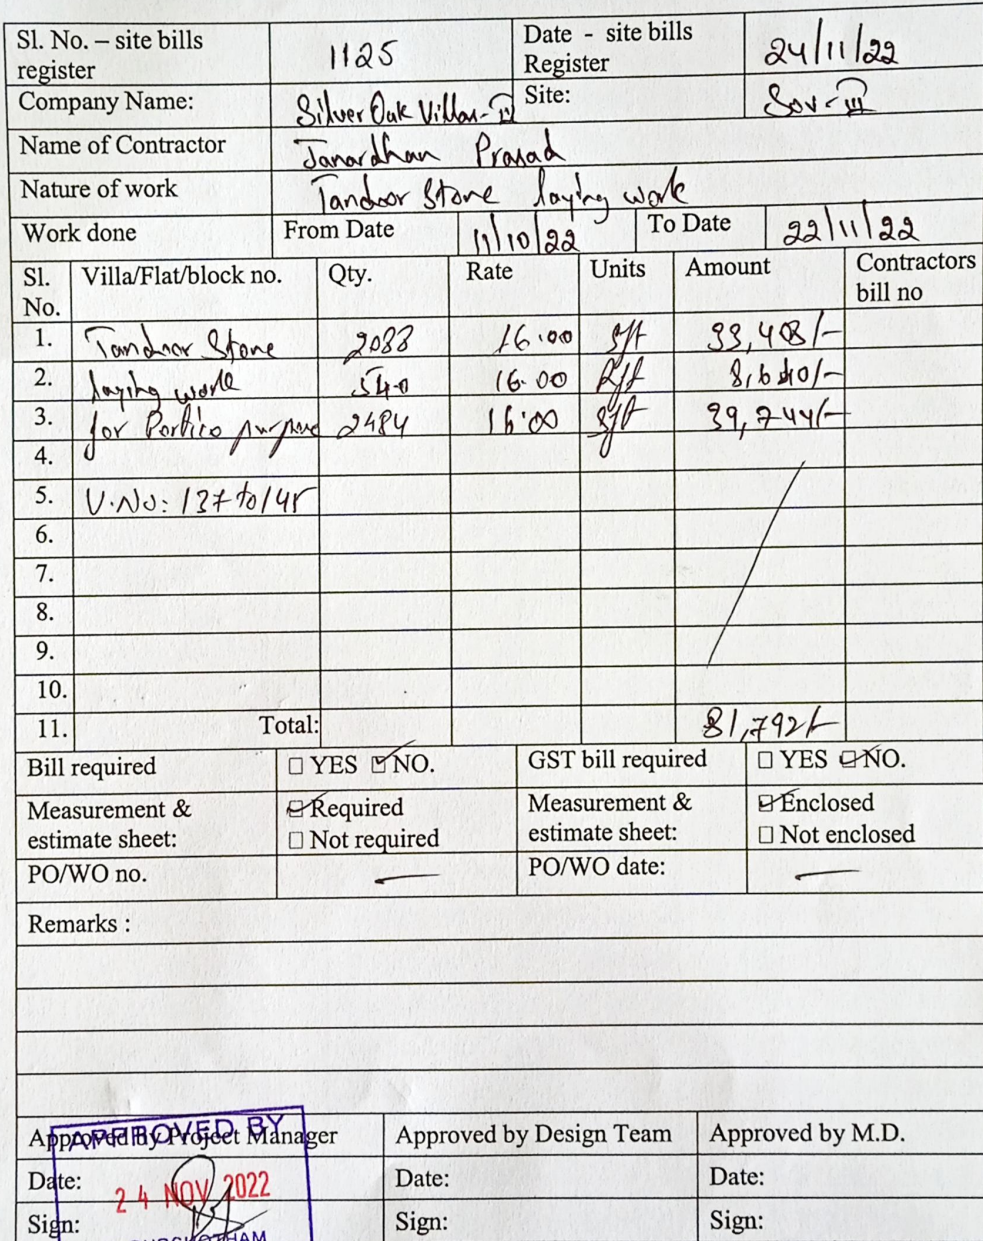 Sl. No. – site bills register 1125 Date - site bills Register 24/11/22
Company Name: Silver Oak Villas-III Site: Sov-III
Name of Contractor Janardhan Prasad
Nature of work Tandoor Stone laying work
Work done From Date 11/10/22 To Date 22/11/22
Sl. No. Villa/Flat/block no. Qty. Rate Units Amount Contractors bill no
1. Tandoor Stone 2088 16.00 Sft 33,408/-
2. laying work 540 16.00 Rft 8,640/-
3. for Portico purpose 2484 16.00 Sft 39,744/-
4.
5. V.No: 137 to 145
6.
7.
8.
9.
10.
11. Total: 81,792/-
Bill required ☐ YES ☑ NO. GST bill required ☐ YES ☑ NO.
Measurement & estimate sheet: ☑ Required ☐ Not required Measurement & estimate sheet: ☑ Enclosed ☐ Not enclosed
PO/WO no. — PO/WO date: —
Remarks :
APPROVED BY
Approved By Project Manager Approved by Design Team Approved by M.D.
Date: 24 NOV 2022 Date: Date:
Sign: Sign: Sign: